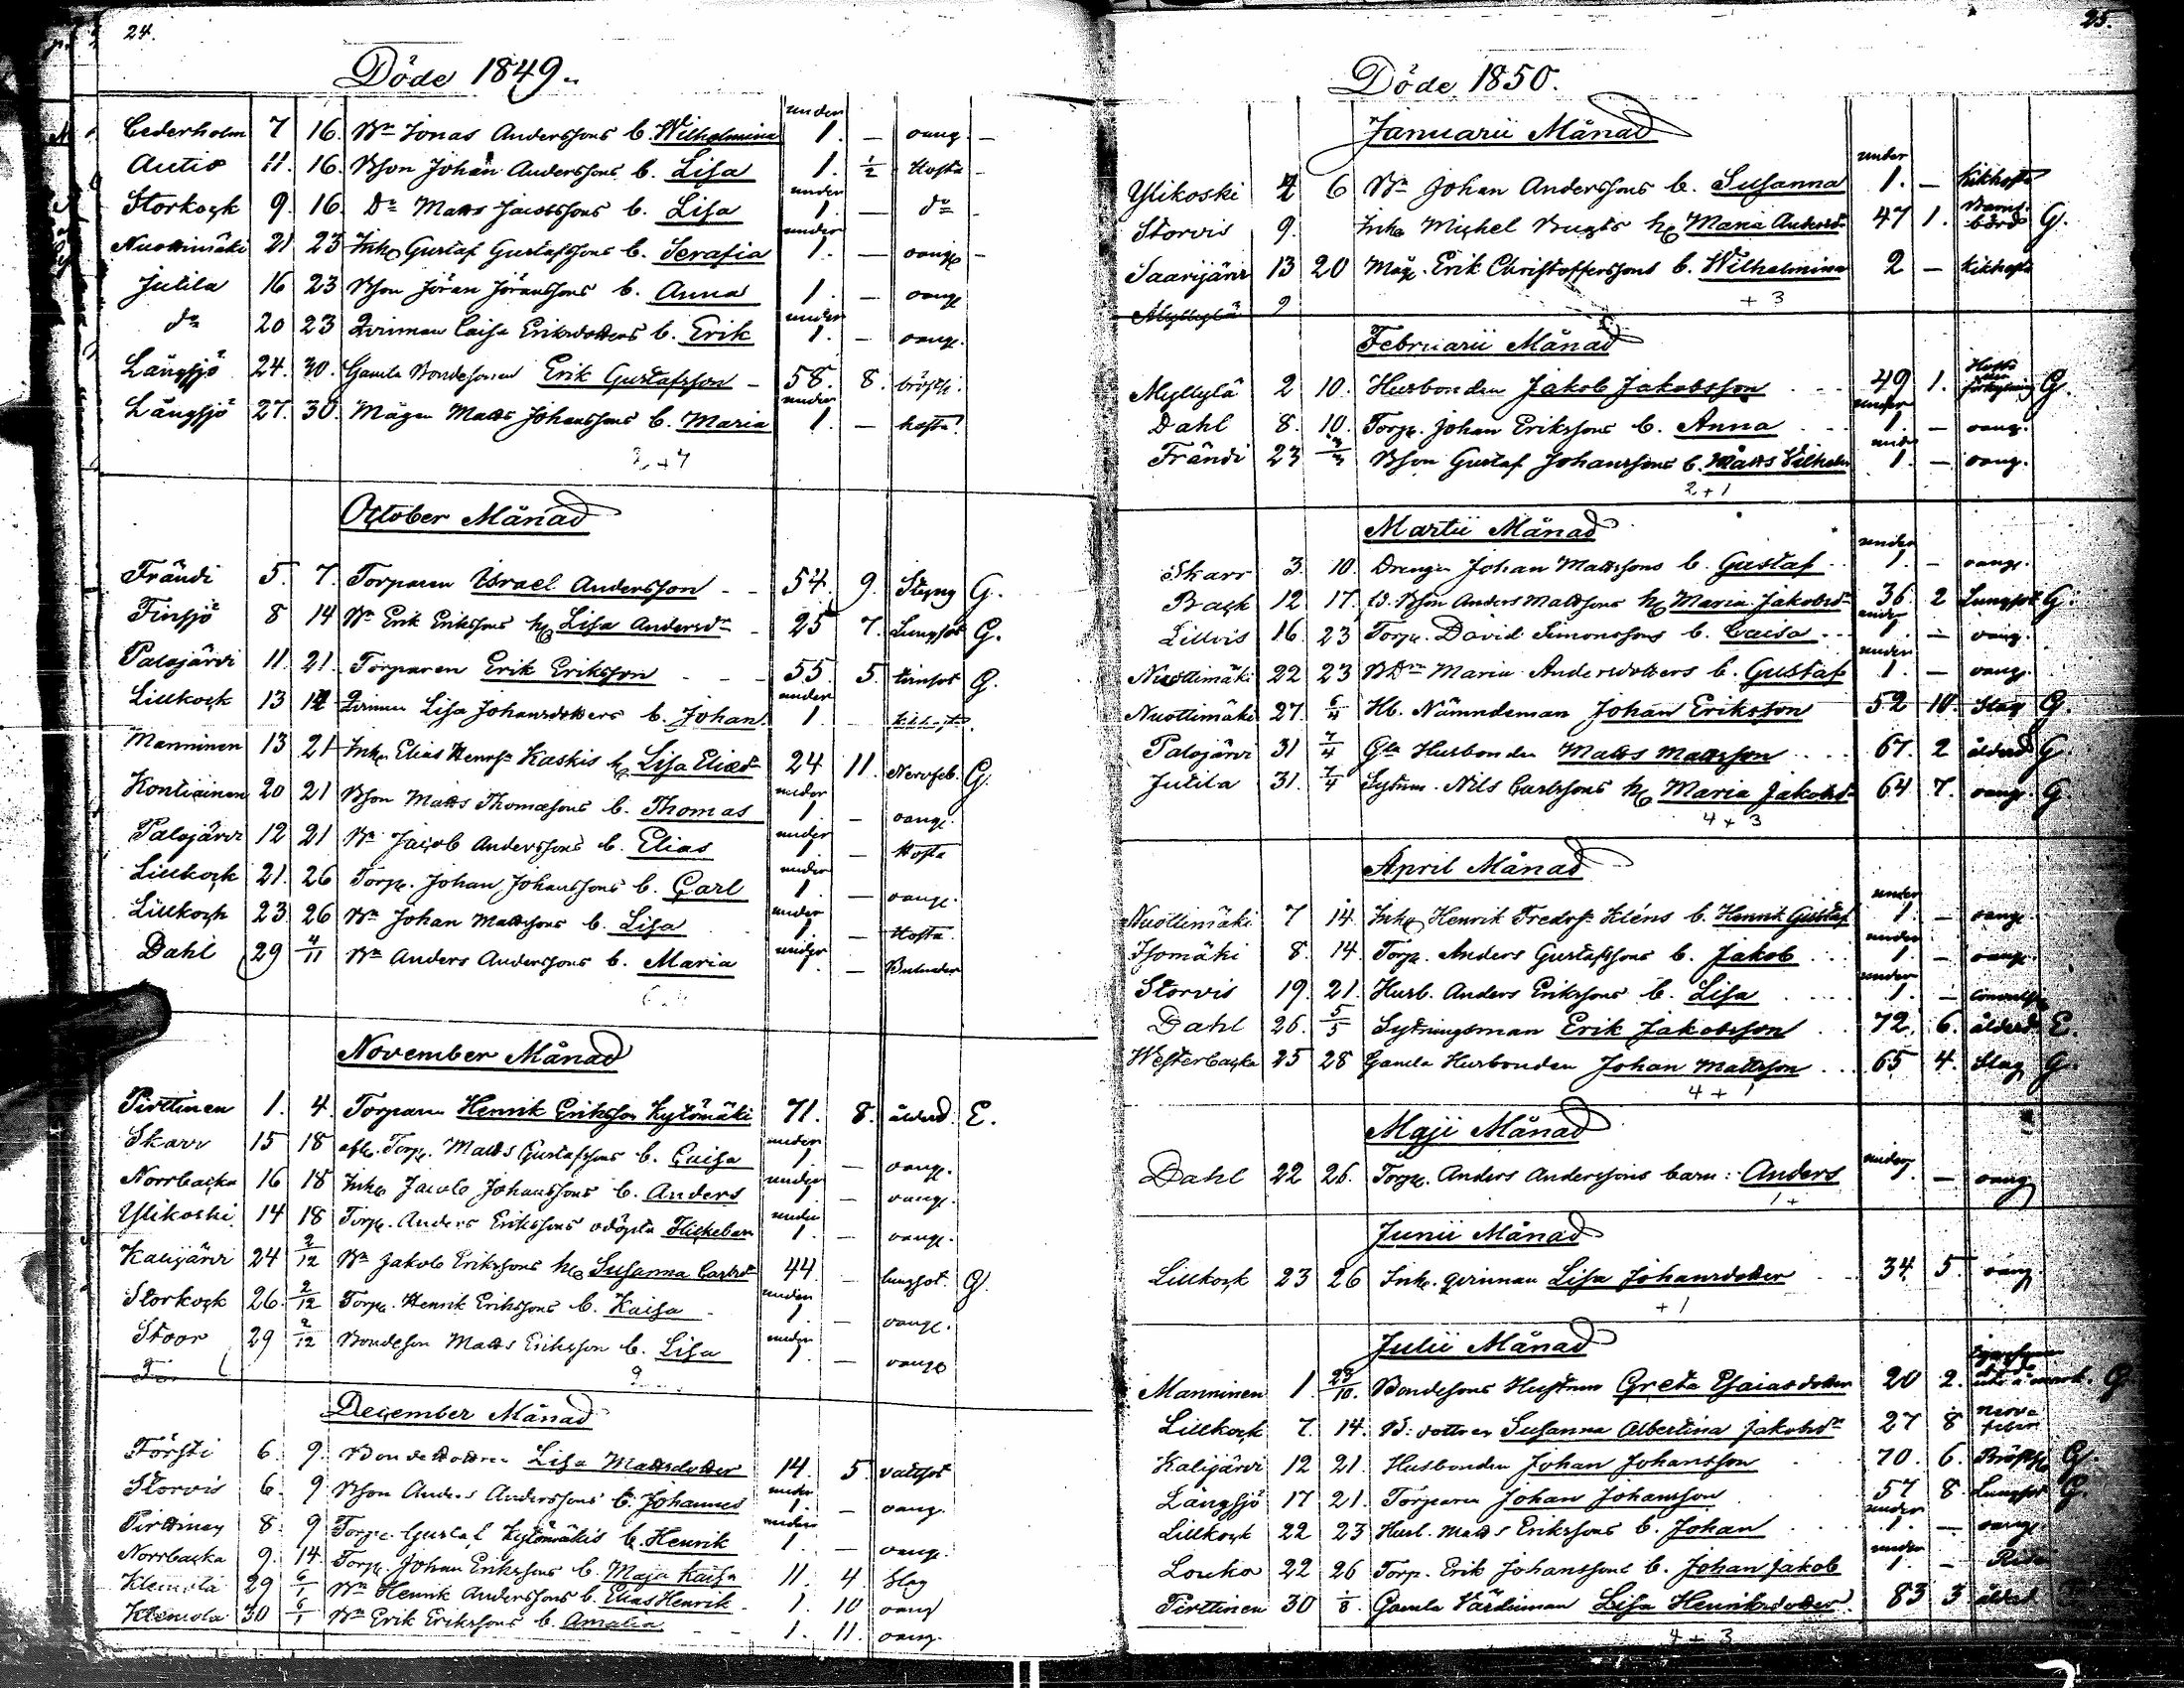 24.
Döde 1849.
Cederholm 7 16. Bn Jonas Anderssons b. Wilhelmina under 1. — oang. —
Autio 11. 16. Bson Johan Anderssons b. Lisa 1. ½ Hosta —
Storkock 9. 16. Do Matts Jacobssons b. Lisa under 1. — do —
Nuottimäki 21 23 Inh. Gustaf Gustafssons b. Serafia under 1. — oang. —
Jutila 16 23 Bson Jöran Jöranssons b. Anna 1. — oang.
do 20 23 Qvinnan Caisa Eriksdotters b. Erik under 1. — oang.
Långsjö 24. 30. Gamla Bondesonen Erik Gustafsson — 58. 8. bröstsj.
Långsjö 27. 30. Mågen Matts Johanssons b. Maria under 1. — hosta.
October Månad
Frändi 5. 7. Torparen Israel Andersson 54. 9. Styng G.
Finsjö 8 14 Bn Erik Erikssons h. Lisa Andersdr 25 7. Lungsot G.
Palojärvi 11. 21. Torparen Erik Eriksson 55. 5. G.
Lillkock 13 14 Qvinnan Lisa Johansdotters b. Johan under 1 —
Manninen 13 21 Inh. Elias Henrs. Kaskis h. Lisa Eliasdr 24 11. Nervfeb. G.
Kontiainen 20 21 Bson Matts Thomasons b. Thomas under 1 — oang.
Palojärvi 12 21 Bn Jacob Anderssons b. Elias under 1 — Hosta
Lillkock 21. 26 Torp. Johan Johanssons b. Carl under 1. — oang.
Lillkock 23 26 Bn Johan Mattssons b. Lisa under 1. — Hosta.
Dahl 29 4/11 Bn Anders Anderssons b. Maria under 1. —
November Månad
Pirttinen 1. 4. Torparen Henrik Eriksson Kytömäki 71. 8. ålderd. E.
Skarr 15 18 Torp. Matts Gustafssons b. Caisa under 1 — oang.
Norrbacka 16 18 Inh. Jacob Johanssons b. Anders under 1 — oang.
Ylikoski 14 18 Torp. Anders Erikssons odöpta Flickebarn under 1. — oang.
Kalijärvi 24 2/12 Bn Jakob Erikssons h. Susanna Carlsdr 44 — lungsot. G.
Storkock 26. 2/12 Torp. Henrik Erikssons b. Kaisa under 1 — oang.
Stoor 29 2/12 Bondeson Matts Eriksson b. Lisa under 1 — oang
9
December Månad
Försti 6. 9. Bondedottren Lisa Mattsdotter 14. 5. vattsot
Storvis 6. 9 Bson Anders Anderssons b. Johannes under 1. — oang.
Pirttinen 8 9 Torp. Gustaf Kytömäkis b. Henrik under 1. — oang.
Norrbacka 9. 14. Torp. Johan Erikssons b. Maja Kaisa 11. 4. Slag
Klemola 29 6/1 Bn Henrik Anderssons b. Elias Henrik 1. 10 oang
Klemola 30 6/1 Bn Erik Erikssons b. Amalia 1. 11. oang.
25.
Döde 1850.
Januarii Månad
Ylikoski 4 6 Bn Johan Anderssons b. Susanna under 1. — Kikhosta
Storvis 9. Inh. Michel h. Maria Andersdr 47 1. Barnsbörd G.
Saarijärvi 13 20 Måg. Erik Christofferssons b. Wilhelmina 2 — Kikhosta
Myllylä 9
+ 3
Februarii Månad
Myllylä 2 10. Husbonden Jakob Jakobsson 49 1. Hosta G.
Dahl 8. 10. Torp. Johan Erikssons b. Anna under 1. — oang.
Frändi 23 3/3 Bson Gustaf Johanssons b. Matts Wilhelm under 1. — oang.
2 + 1
Martii Månad
Skarr 3. 10. Drengen Johan Mattssons b. Gustaf under 1. — oang.
Back 12 17. Bson Anders Mattssons h. Maria Jakobsdr 36. 2 Lungsot G.
Lillvis 16. 23 Torp. David Simonssons b. Caisa under 1. — oang.
Nuottimäki 22 23 BDn Maria Andersdotters b. Gustaf under 1. — oang.
Nuottimäki 27. 6/4 Hb. Nämndeman Johan Eriksson 52 10. Slag G.
Palojärvi 31 7/4 Gla Husbonden Matts Mattsson 67. 2 ålderd G.
Jutila 31. 7/4 Sytnm. Nils Carlssons h. Maria Jakobsdr 64 7. oang. G
4 + 3
April Månad
Nuottimäki 7 14. Inh. Henrik Fredrs. Kléns b. Henrik Gustaf under 1. — oang.
Isomäki 8. 14. Torp. Anders Gustafssons b. Jakob under 1. — oang.
Storvis 19. 21. Husb. Anders Erikssons b. Lisa under 1. —
Dahl 26. 5/5 Sytningsman Erik Jakobsson 72. 6. ålderd. E.
Westerbacka 25 28 Gamla Husbonden Johan Mattsson 65 4. Slag G.
4 + 1
Maji Månad
Dahl 22 26. Torp. Anders Anderssons barn: Anders under 1. — oang
1 +
Junii Månad
Lillkock 23 26 Inh. qvinnan Lisa Johansdotter 34. 5. oang.
+ 1
Julii Månad
Manninen 1. 27/10. Bondesons Hustrun Greta Esaiasdotter 20 2. G
Lillkock 7. 14. B: dottren Susanna Albertina Jakobsdr 27 8 Nervfeber
Kalijärvi 12 21. Husbonden Johan Johansson 70. 6. Bröstsj. G.
Långsjö 17 21. Torparen Johan Johansson 57 8. Lungsot G.
Lillkock 22 23 Husb. Matts Erikssons b. Johan under 1. — oang
Louko 22 26 Torp. Erik Johanssons b. Johan Jakob under 1. —
Pirttinen 30 1/8. Gamla Värdinnan Lisa Henriksdotter 83 3 ålderd
4 + 3